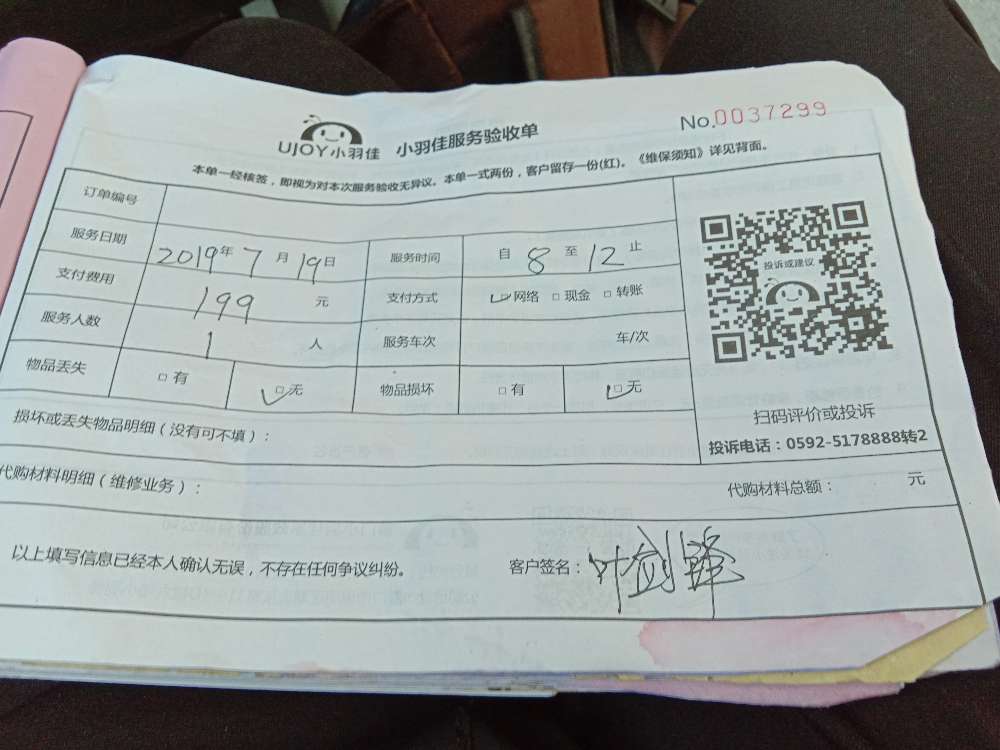 UJOY小羽佳 小羽佳服务验收单 No.0037299
本单一经核签，即视为对本次服务验收无异议。本单一式两份，客户留存一份(红)。《维保须知》详见背面。
订单编号
服务日期 2019年7月19日 服务时间 自8至12止
支付费用 199元 支付方式 □网络 □现金 □转账
服务人数 1人 服务车次 车/次
物品丢失 □有 □无 物品损坏 □有 □无
投诉或建议
扫码评价或投诉
投诉电话：0592-5178888转2
损坏或丢失物品明细（没有可不填）：
代购材料明细（维修业务）： 代购材料总额： 元
以上填写信息已经本人确认无误，不存在任何争议纠纷。 客户签名：叶剑